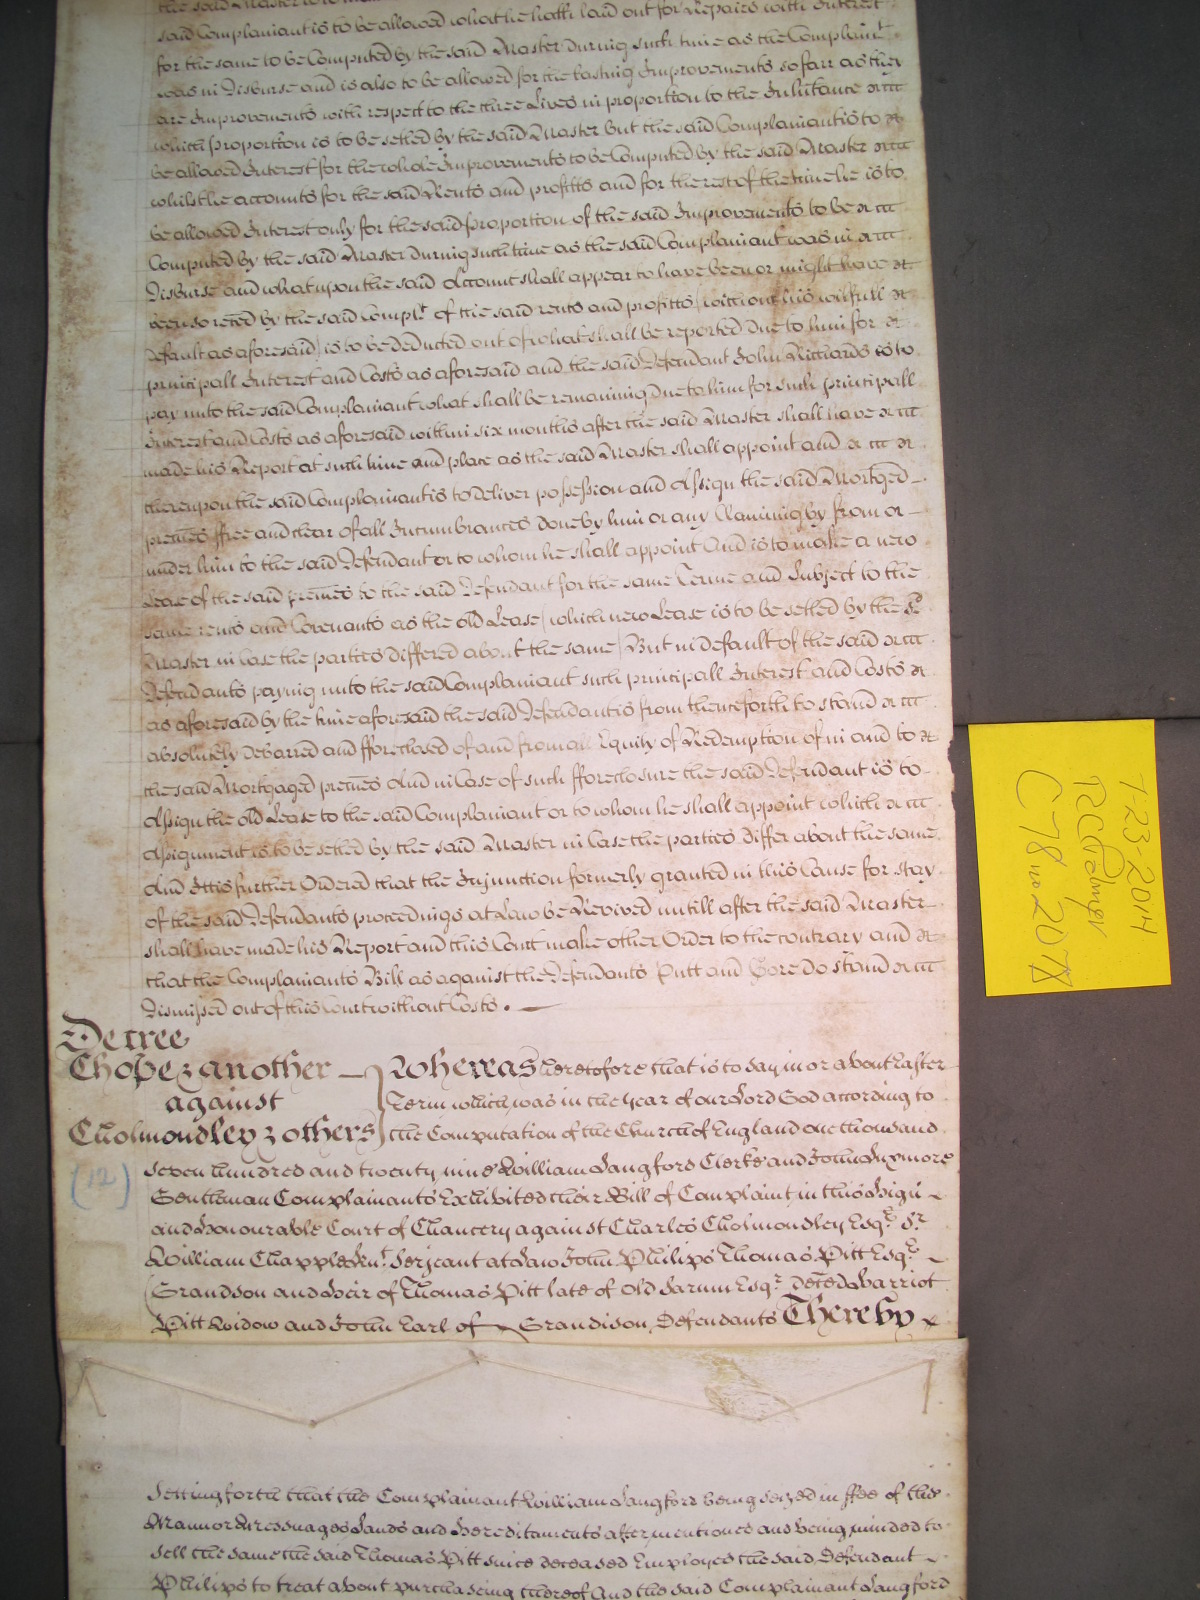 the said Master
said Complainant is to be allowed what he hath laid out for Repairs with Interest
for the same to be Computed by the said Master during such time as the Complain.t
was in Disburse and is also to be allowed for the lasting Improvements so farr as they
are Improvements with respect to the three Lives in proportion to the Inheritance
which proportion is to be setled by the said Master But the said Complainant is to
be allowed Interest for the whole Improvements to be Computed by the said Master
whilst he accounts for the said Rents and profitts and for the rest of the time he is to
be allowed Interest only for the said proportion of the said Improvements to be
Computed by the said Master during such time as the said Complainant was in
Disburse and what upon the said Account shall appear to have been or might have
been so reced by the said Compl.t of the said rents and profitts (without his willfull
default as aforesaid) is to be deducted out of what shall be reported due to him for
principall Interest and Costs as aforesaid and the said Defendant John Richards is to
pay unto the said Complainant what shall be remaining due to him for such principall
Interest and Costs as aforesaid within six months after the said Master shall have
made his Report at such time and place as the said Master shall appoint and
thereupon the said Complainant is to deliver possession and Assign the said Mortged
premes ffree and clear of all Incumbrances done by him or any Claiming by from or
under him to the said Defendant or to whom he shall appoint And is to make a new
Lease of the said premes to the said Defendant for the same Terme and Subject to the
same rents and Covenants as the old Lease (which new Lease is to be setled by the sd
Master in Case the parties differed about the same) But in default of the said
Defendants paying unto the said Complainant such principall Interest and Costs
as aforesaid by the time aforesaid the said Defendant is from thenceforth to stand
absolutely Debarred and fforeclosed of and from all Equity of Redemption of in and to
the said Mortgaged premes And in Case of such fforeclosure the said Defendant is to
Assign the old Lease to the said Complainant or to whom he shall appoint which
Assignment is to be setled by the said Master in Case the parties differ about the same
And Itt is further Ordered that the Injunction formerly granted in this Cause for stay
of the said Defendants proceedings at Law be Revived untill after the said Master
shall have made his Report and this Court make other Order to the contrary and
that the Complainants Bill as against the Defendants Putt and Gore do stand
Dismissed out of this Court without Costs.
Decree
Chope & another
against
Cholmondley & others
Whereas heretofore that is to say in or about Easter
Term which was in the year of our Lord God according to
the Computation of the Church of England one thousand
(12)
seven hundred and twenty nine William Langford Clerke and John Luxmore
Gentleman Complainants Exhibited their Bill of Complaint in this high
and honourable Court of Chancery against Charles Cholmondley Esq.r S.r
William Chapple Kn.t Serjeant at Law John Philips Thomas Pitt Esq.r
Grandson and heir of Thomas Pitt late of Old Sarum Esq.r deced Harriot
Pitt Widow and John Earl of Grandison Defendants Thereby
setting forth that the Complainant William Langford being seized in ffee of the
Mannor Messuages Lands and hereditaments after mentioned and being minded to
sell the same the said Thomas Pitt since deceased Employed the said Defendant
Philips to treat about purchasing thereof And the said Complainant Langford
7-23-2014
RC Palmer
C78 no 2078